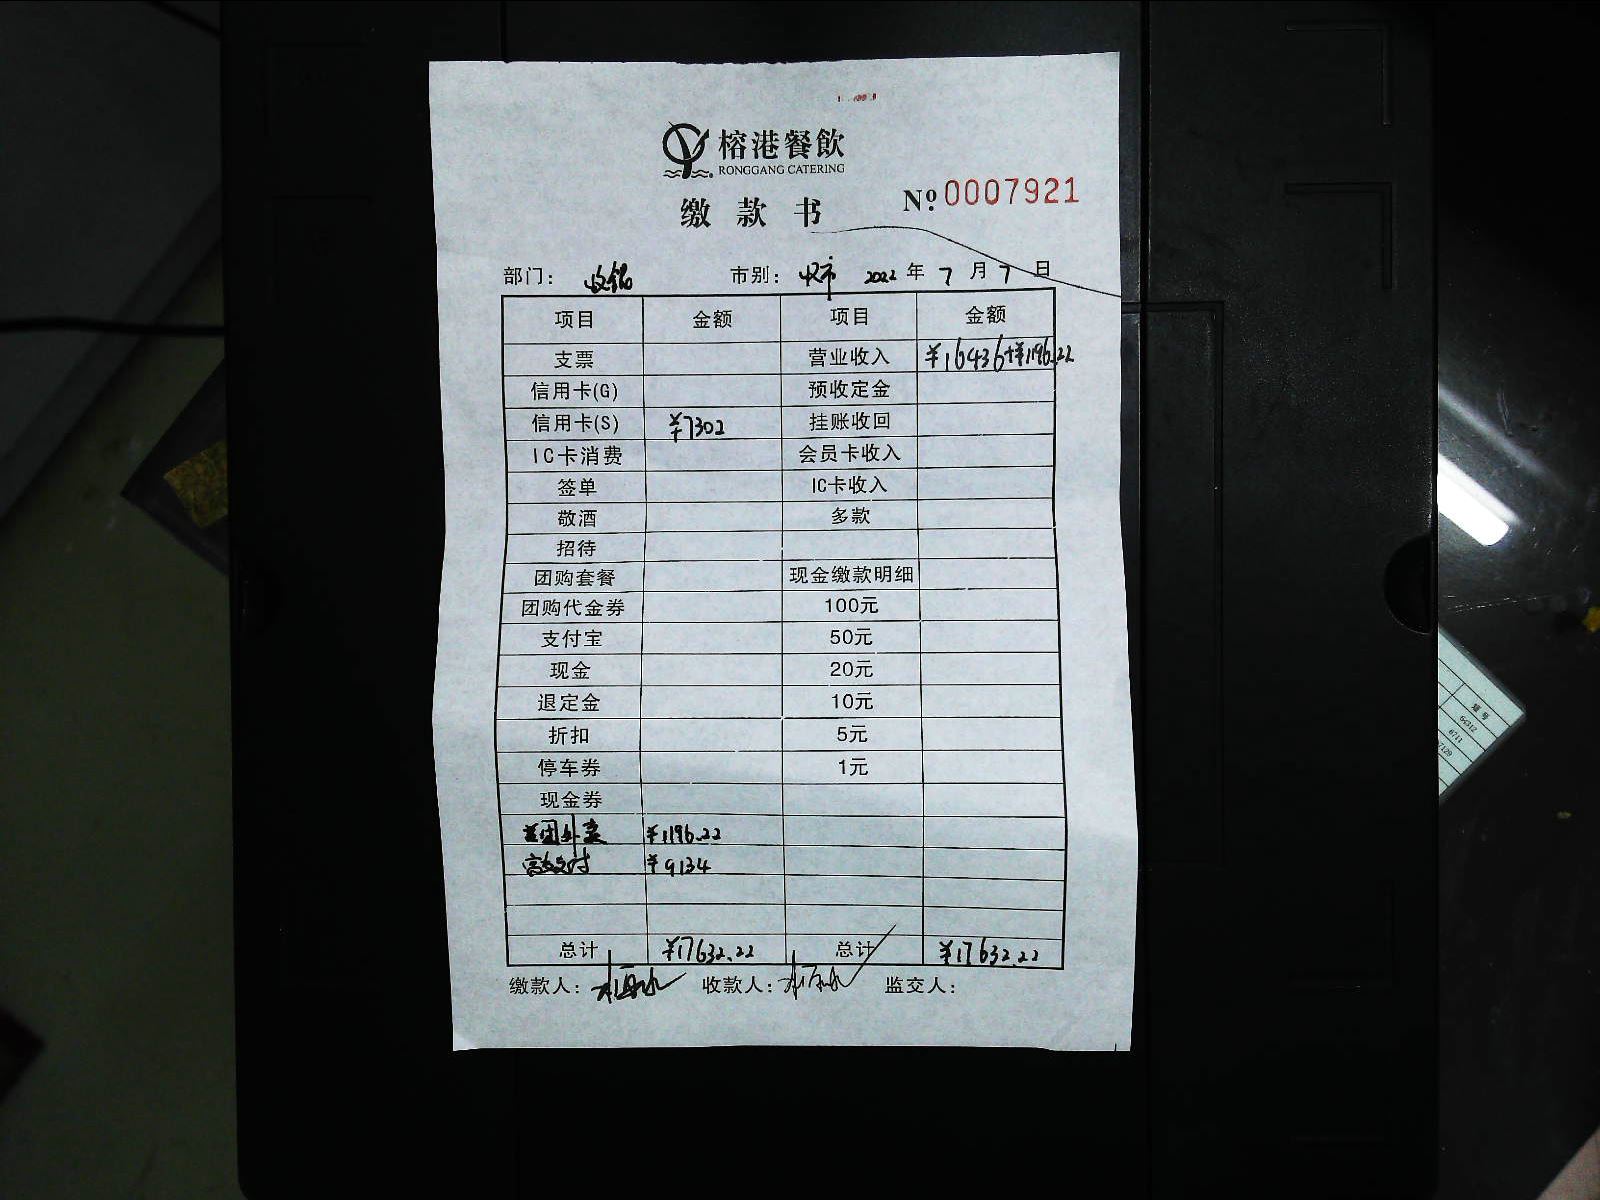 榕港餐飲
RONGGANG CATERING
缴款书 №0007921
部门: 收银 市别: 收市 2022 年 7 月 7 日
项目 金额 项目 金额
支票 营业收入 ¥16436+¥1196.22
信用卡(G) 预收定金
信用卡(S) ¥7302 挂账收回
IC卡消费 会员卡收入
签单 IC卡收入
敬酒 多款
招待
团购套餐 现金缴款明细
团购代金券 100元
支付宝 50元
现金 20元
退定金 10元
折扣 5元
停车券 1元
现金券
美团外卖 ¥1196.22
¥9134
总计 ¥17632.22 总计 ¥17632.22
缴款人: 收款人: 监交人: